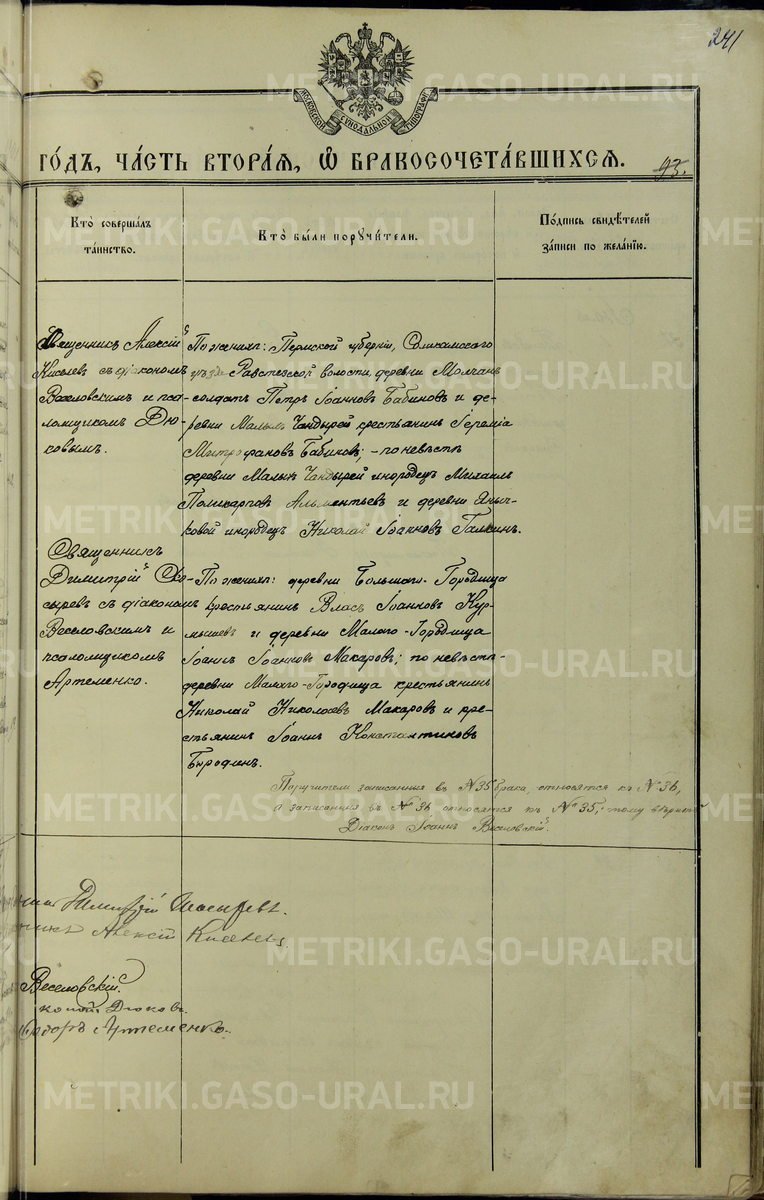 241
МОСКОВСКОЙ СѴНОДАЛЬНОЙ ТИПОГРАФІИ
ГО́ДЪ, ЧА́СТЬ ВТОРА́Я, Ѡ БРАКОСОЧЕТА́ВШИХСЯ.
93.
Кто̀ совершалъ
таинство.
Кто̀ бы́ли порꙋчи́тели.
По́дпись свидѣ́телей
за́писи по жела́нїю.
Священникъ Алексій
Киселев съ діакономъ
Веселовскимъ и пса-
ломщикомъ Дю-
ковымъ.
По женихѣ: Пермской губерніи, Соликамского
уѣзда волости, деревни Молчанъ
солдатъ Петръ Іоанновъ Бабиновъ и де-
ревни Малыхъ Чандырей крестьянинъ Іеремія
Митрофановъ Бабиновъ; - по невѣстѣ
деревни Малыхъ Чандырей инородецъ Михаилъ
Поликарповъ Альментьевъ и деревни Яныч-
ковой инородецъ Николай Іоанновъ Галкинъ.
Священникъ
Димитрій Яго-
сыревъ съ діакономъ
Веселовскимъ и
псаломщикомъ
Артеменко.
По женихѣ: деревни Большаго-Городища
крестьянинъ Власъ Іоанновъ Кур-
мышевъ и деревни Малого-Городища
Іоаннъ Іоанновъ Макаровъ; по невѣстѣ-
деревни Малого-Городища крестьянинъ
Николай Николаевъ Макаровъ и кре-
стьянинъ Іоаннъ Константиновъ
Бородинъ.
Поручители записанныя въ №35 брака, относятся къ №36,
а записанныя въ №36 относятся къ №35, тому вѣрно
Діаконъ Іоаннъ Веселовскій
Димитрій
Алексій Киселевъ
Веселовскій.
Дюковъ.
Артеменко.
METRIKI.GASO-URAL.RU